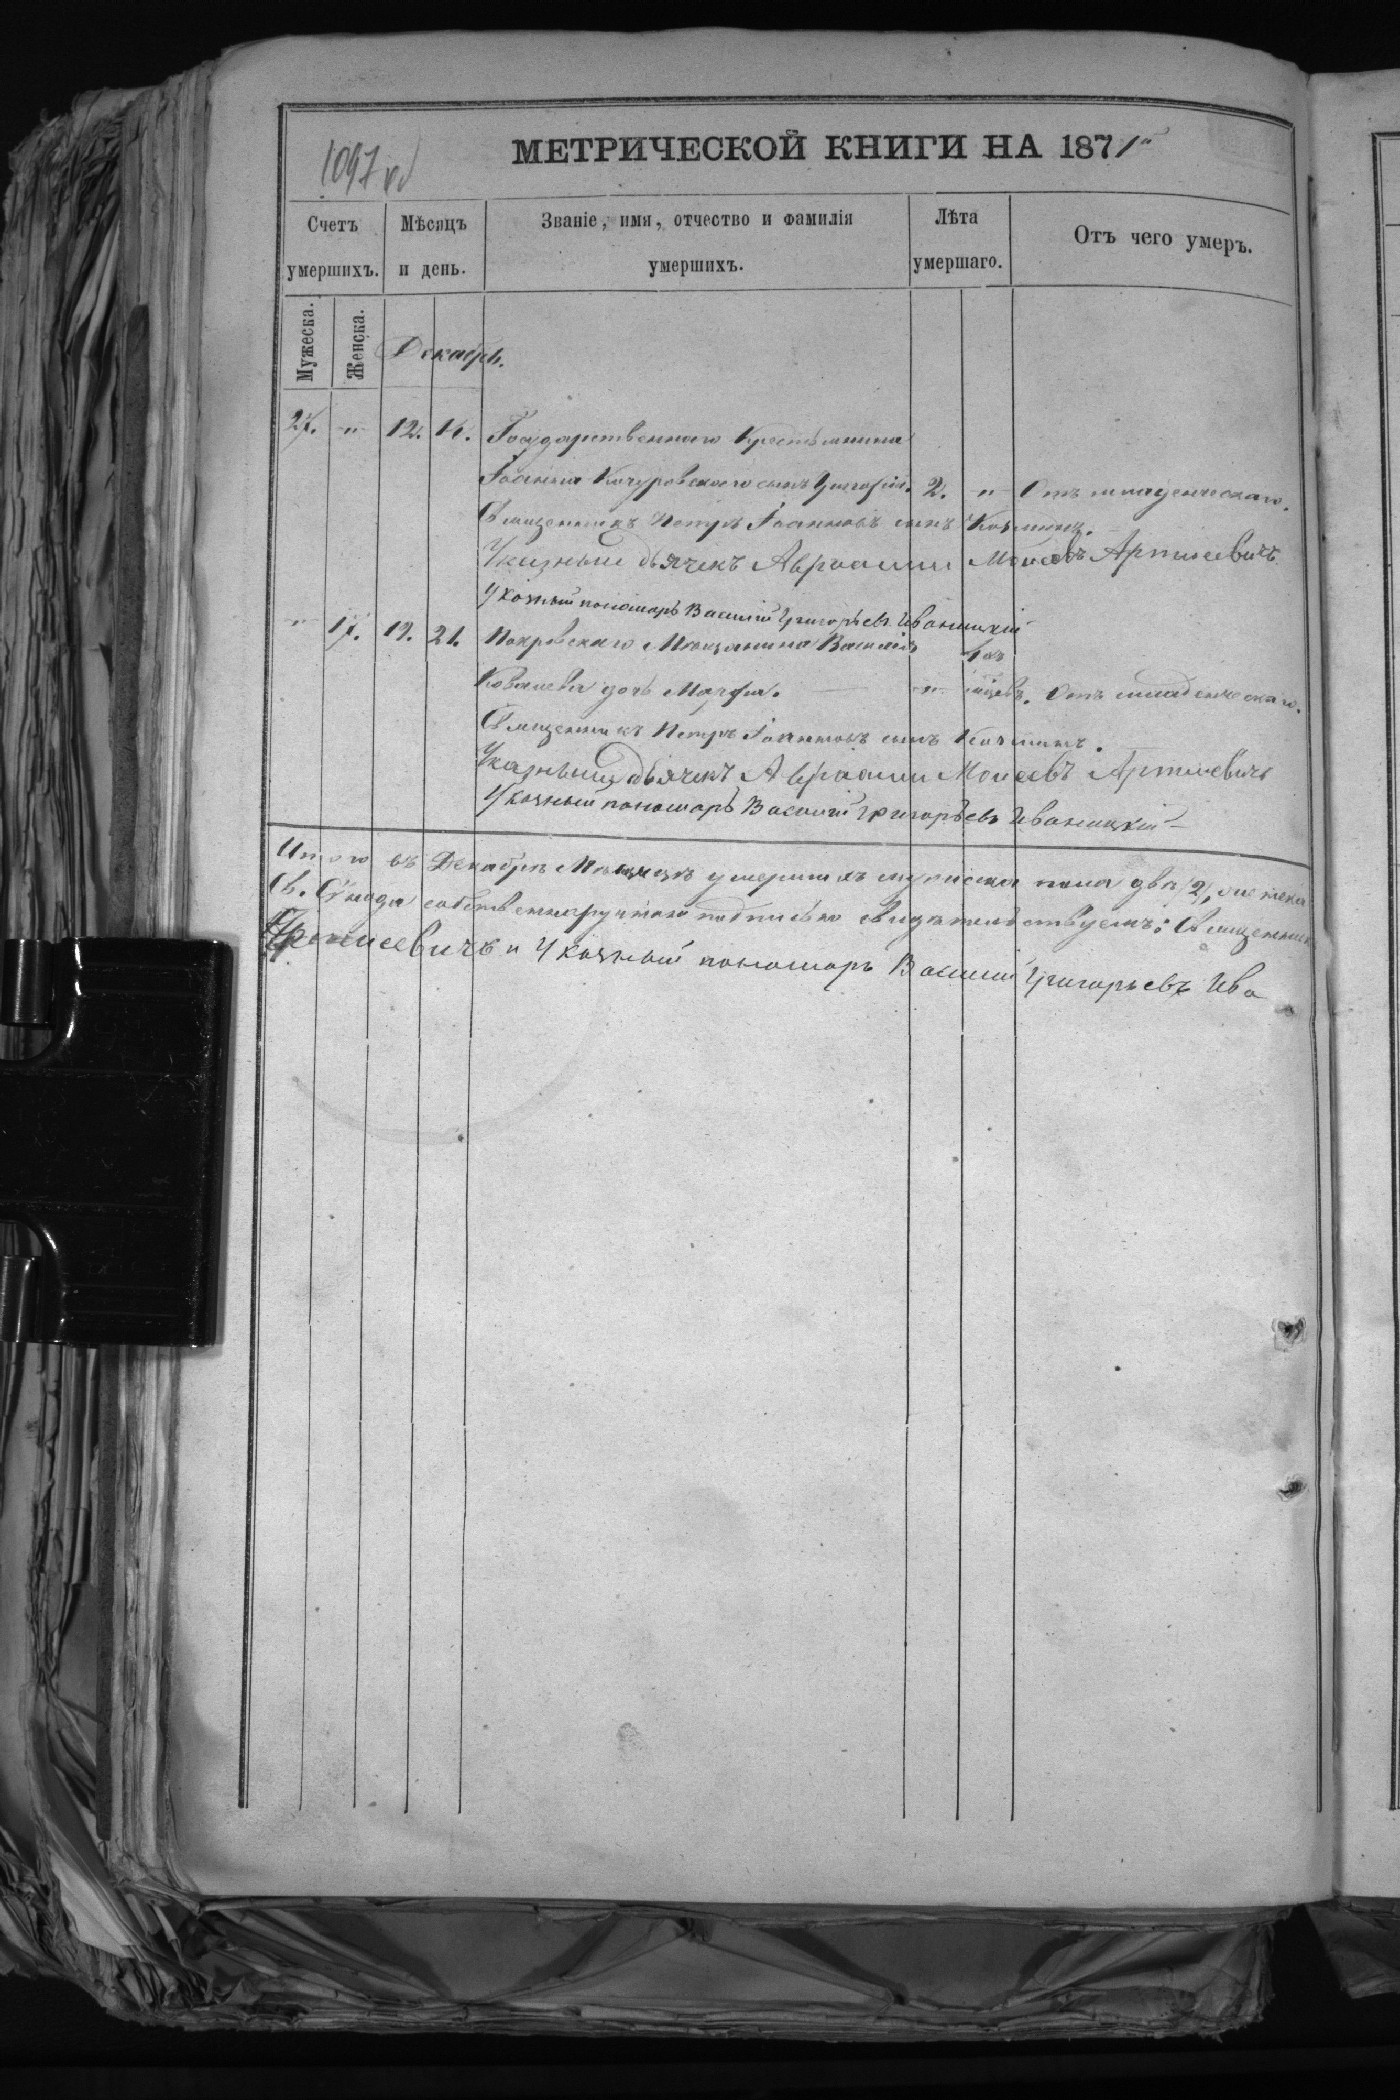 1097 об
МЕТРИЧЕСКОЙ КНИГИ НА 1871й
Счетъ умершихъ.
Мѣсяцъ и день.
Званіе, имя, отчество и фамилія умершихъ.
Лѣта умершаго.
Отъ чего умеръ.
Мужеска.
Женска.
Декабрь.
27. " 12. 14. Государственнаго Крестьянина
Іоанна Качуровскаго сынъ Григорій. 2. " Отъ младенческаго.
Священникъ Петръ Іоанновъ сынъ
Указный дьячекъ Авраамій Моисеевъ Артисевичъ
Указный пономарь Василій Григорьевъ Иваницкій
" 17. 19. 21. Покровскаго Мѣщанина Василія
Ковалева дочь Марфа. " Отъ младенческаго.
Священникъ Петръ Іоанновъ сынъ
Указный дьячекъ Авраамій Моисеевъ Артисевичъ
Указный пономарь Василій Григорьевъ Иваницкій
Итого въ Декабрѣ Мѣсяцѣ умершихъ мужеска пола два /2/, женска
Св. Сѵнода собственноручною подписью свидѣтельствуемъ: Священникъ
Артисевичъ и Указный пономарь Василій Григорьевъ Ива